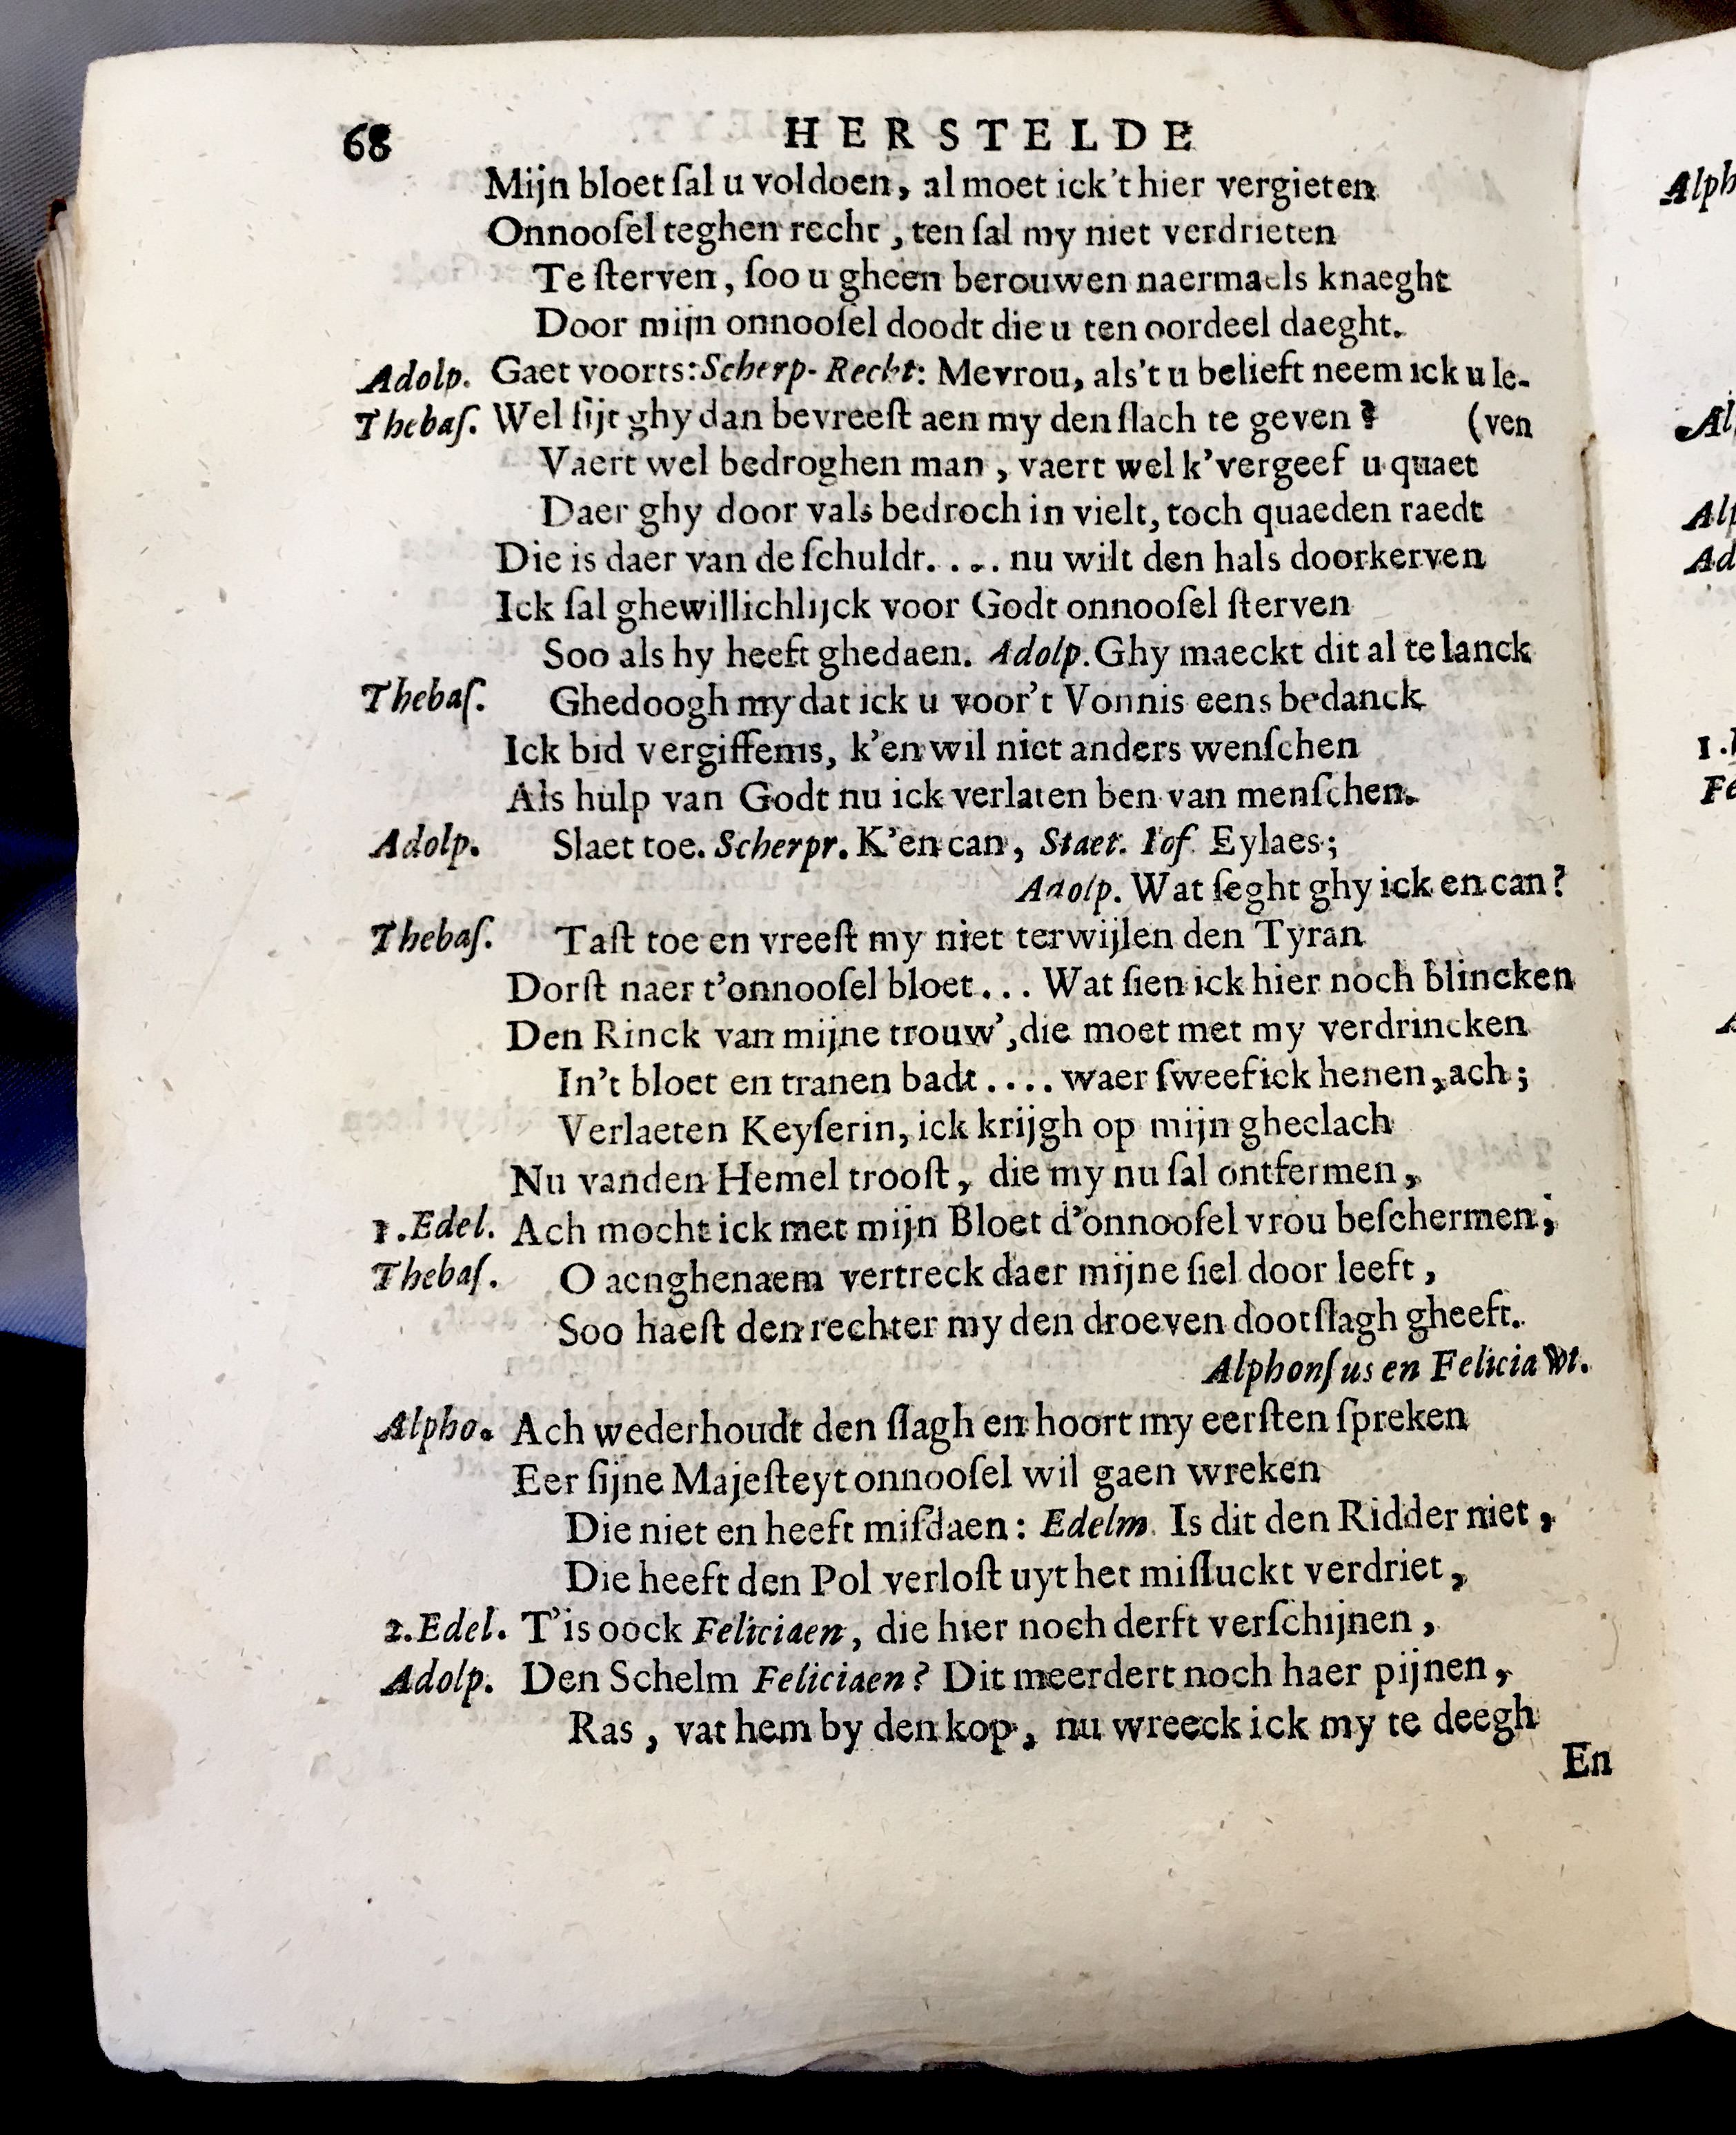 68 HERSTELDE
Mijn bloet ſal u voldoen, al moet ick 't hier vergieten
Onnooſel teghen recht, ten ſal my niet verdrieten
Te ſterven, ſoo u gheen berouwen naermaels knaeght
Door mijn onnooſel doodt die u ten oordeel daeght.
Adolp. Gaet voorts: Scherp-Recht: Mevrou, als't u belieft neem ick u le-
Thebaſ. Wel ſijt ghy dan bevreeſt aen my den ſlach te geven? (ven
Vaert wel bedroghen man, vaert wel k'vergeef u quaet
Daer ghy door vals bedroch in vielt, toch quaeden raedt
Die is daer van de ſchuldt.... nu wilt den hals doorkerven
Ick ſal ghewillichlijck voor Godt onnooſel ſterven
Soo als hy heeft ghedaen. Adolp. Ghy maeckt dit al te lanck
Thebaſ. Ghedoogh my dat ick u voor't Vonnis eens bedanck
Ick bid vergiffenis, k'en wil niet anders wenſchen
Als hulp van Godt nu ick verlaten ben van menſchen.
Adolp. Slaet toe. Scherpr. K'en can, Staet. Iof. Eylaes;
Adolp. Wat ſeght ghy ick en can?
Thebaſ. Taſt toe en vreeſt my niet terwijlen den Tyran
Dorſt naer t'onnooſel bloet... Wat ſien ick hier noch blincken
Den Rinck van mijne trouw', die moet met my verdrincken
In't bloet en tranen badt.... waer ſweef ick henen, ach;
Verlaeten Keyſerin, ick krijgh op mijn gheclach
Nu vanden Hemel trooſt, die my nu ſal ontfermen,
1.Edel. Ach mocht ick met mijn Bloet d'onnooſel vrou beſchermen;
Thebaſ. O aenghenaem vertreck daer mijne ſiel door leeft,
Soo haeſt den rechter my den droeven dootſlagh gheeft.
Alphonſus en Felicia Wt.
Alpho. Ach wederhoudt den ſlagh en hoort my eerſten ſpreken
Eer ſijne Majeſteyt onnooſel wil gaen wreken
Die niet en heeft miſdaen: Edelm. Is dit den Ridder niet,
Die heeft den Pol verloſt uyt het miſluckt verdriet,
2.Edel. T'is oock Feliciaen, die hier noch derft verſchijnen,
Adolp. Den Schelm Feliciaen? Dit meerdert noch haer pijnen,
Ras, vat hem by den kop, nu wreeck ick my te deegh
En
Alph
Al
Alp
Ad
1.
Fe